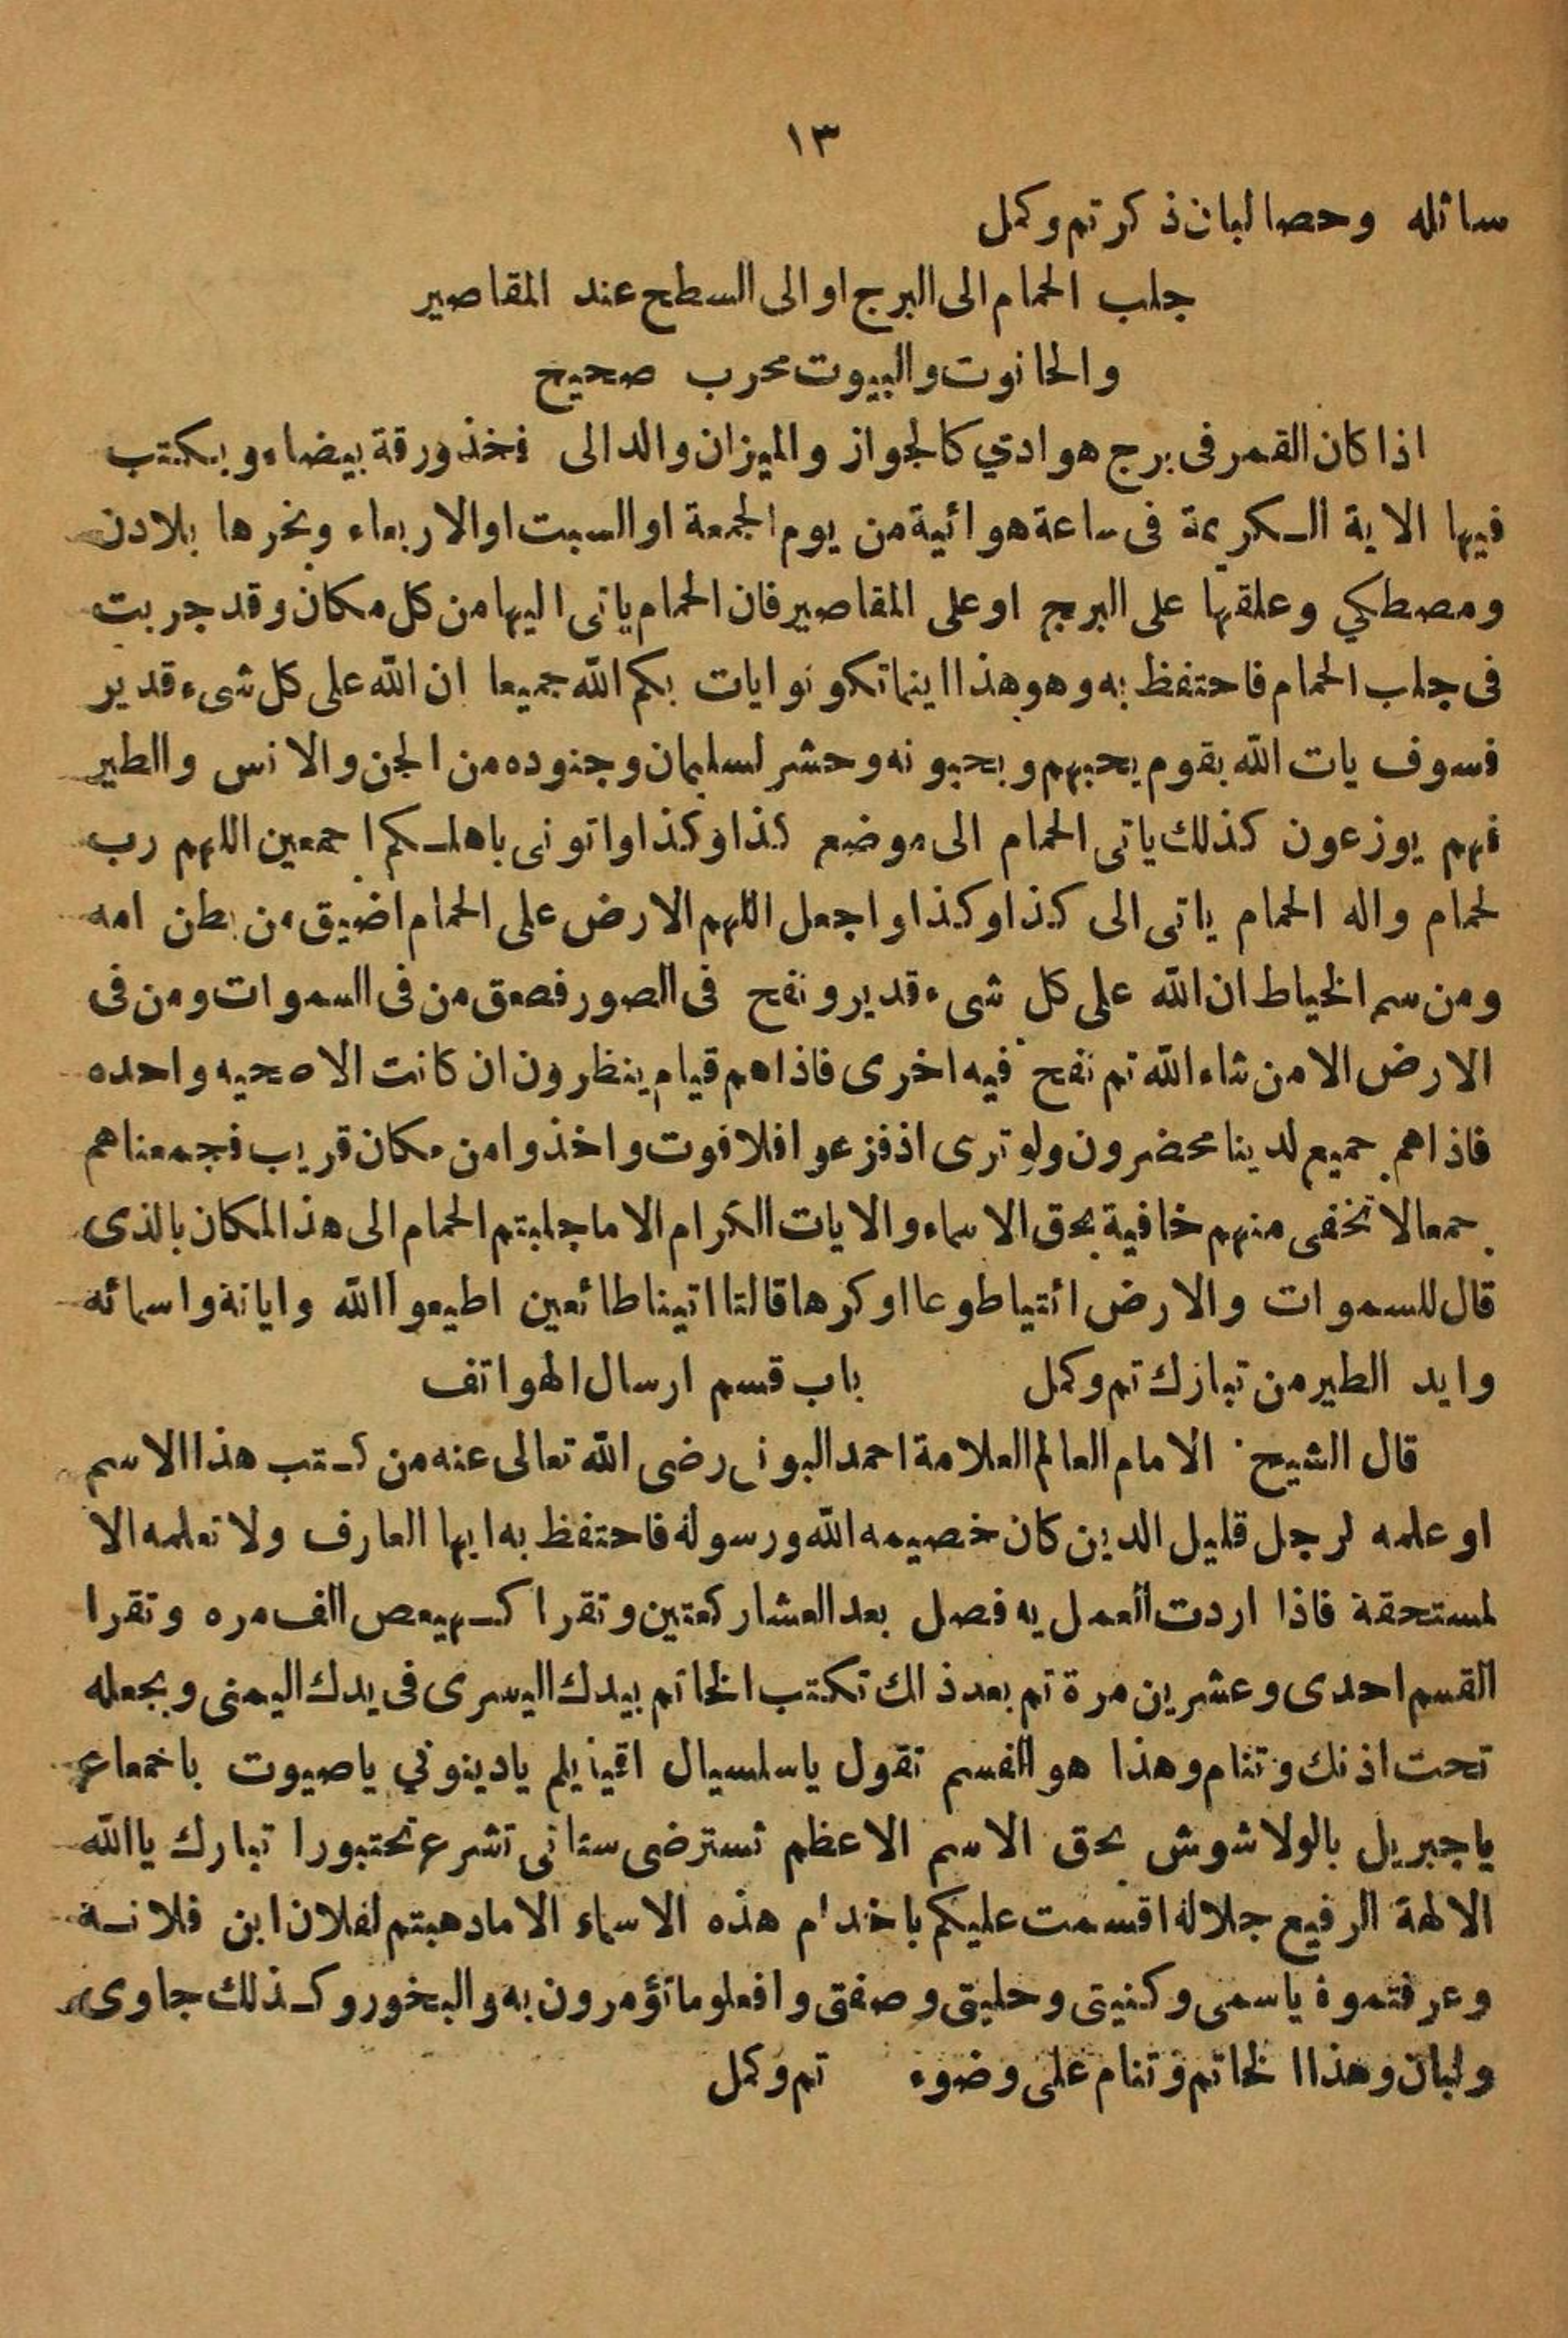 ١٣
سائله وحصا لبان ذكر تم وكمل
جلب الحمام الى البرج او الى السطح عند المقاصير
والحانوت والبيوت محرب صحيح
اذا كان القمر فى برج هوادي كالجواز والميزان والدالى فخذ ورقة بيضاء ويكتب
فيها الاية الكريمة فى ساعة هوائية من يوم الجمعة او السبت او الاربعاء وبخرها بلادن
ومصطكي وعلقها على البرج او على المقاصير فان الحمام ياتى اليها من كل مكان وقد جربت
فى جلب الحمام فاحتفظ به وهو هذا اينما تكونو ايات بكم الله جميعا ان الله على كل شىء قدير
فسوف يات الله بقوم يحبهم ويحبونه وحشر لسليمان وجنوده من الجن والانس والطير
فهم يوزعون كذلك ياتى الحمام الى موضع كذا وكذا واتونى باهلكم اجمعين اللهم رب
لحمام واله الحمام ياتى الى كذا وكذا واجعل اللهم الارض على الحمام اضيق من بطن امه
ومن سم الخياط ان الله على كل شىء قدير ونفح فى الصور فصعق من فى السموات ومن فى
الارض الا من شاء الله تم نفح فيه اخرى فاذا هم قيام ينظرون ان كانت الا صحيه واحده
فاذا هم جميع لدينا محضرون ولو ترى اذ فزعوا فلا فوت واخذوا من مكان قريب فجمعناهم
جمعا لا تخفى منهم خافية بحق الاسماء والايات الكرام الا ما جلبتم الحمام الى هذ المكان بالذى
قال للسموات والارض ائتياطوعا او كرها قالتا اتينا طائعين اطيعوا الله وايانة واسمائه
وايد الطير من تبازك تم وكمل باب قسم ارسال الهواتف
قال الشيح الامام العالم العلامة احمد البونى رضى الله تعالى عنه من كتب هذا الاسم
او علمه لرجل قليل الدين كان خصيمه الله ورسوله فاحتفظ به ايها العارف ولا تعلمه الا
لمستحقة فاذا اردت العمل يه فصل بعد العشار كعتين وتقرا كهيعص الف مره وتقرا
القسم احدى وعشرين مرة تم بعد ذالك تكتب الخاتم بيدك اليسرى فى يدك اليمنى وبجعله
تحت اذنك وتنام وهذا هو القسم تقول ياسلسيال اقيذيلم يادينوني ياصيوت باخمعاع
ياجبريل بالولاشوش بحق الاسم الاعظم تسترضى ستانى تشرع تحتبورا تبارك ياالله
الالهة الرفيع جلاله اقسمت عليكم باخدام هذه الاسماء الا مادهبتم لفلان ابن فلانة
وعرفتموة ياسمى وكنيتى وحليتى وصفتى وافعلو ماتؤمرون به والبخور وكذلك جاوى
ولبان وهذا الخاتم وتنام على وضوء تم وكمل